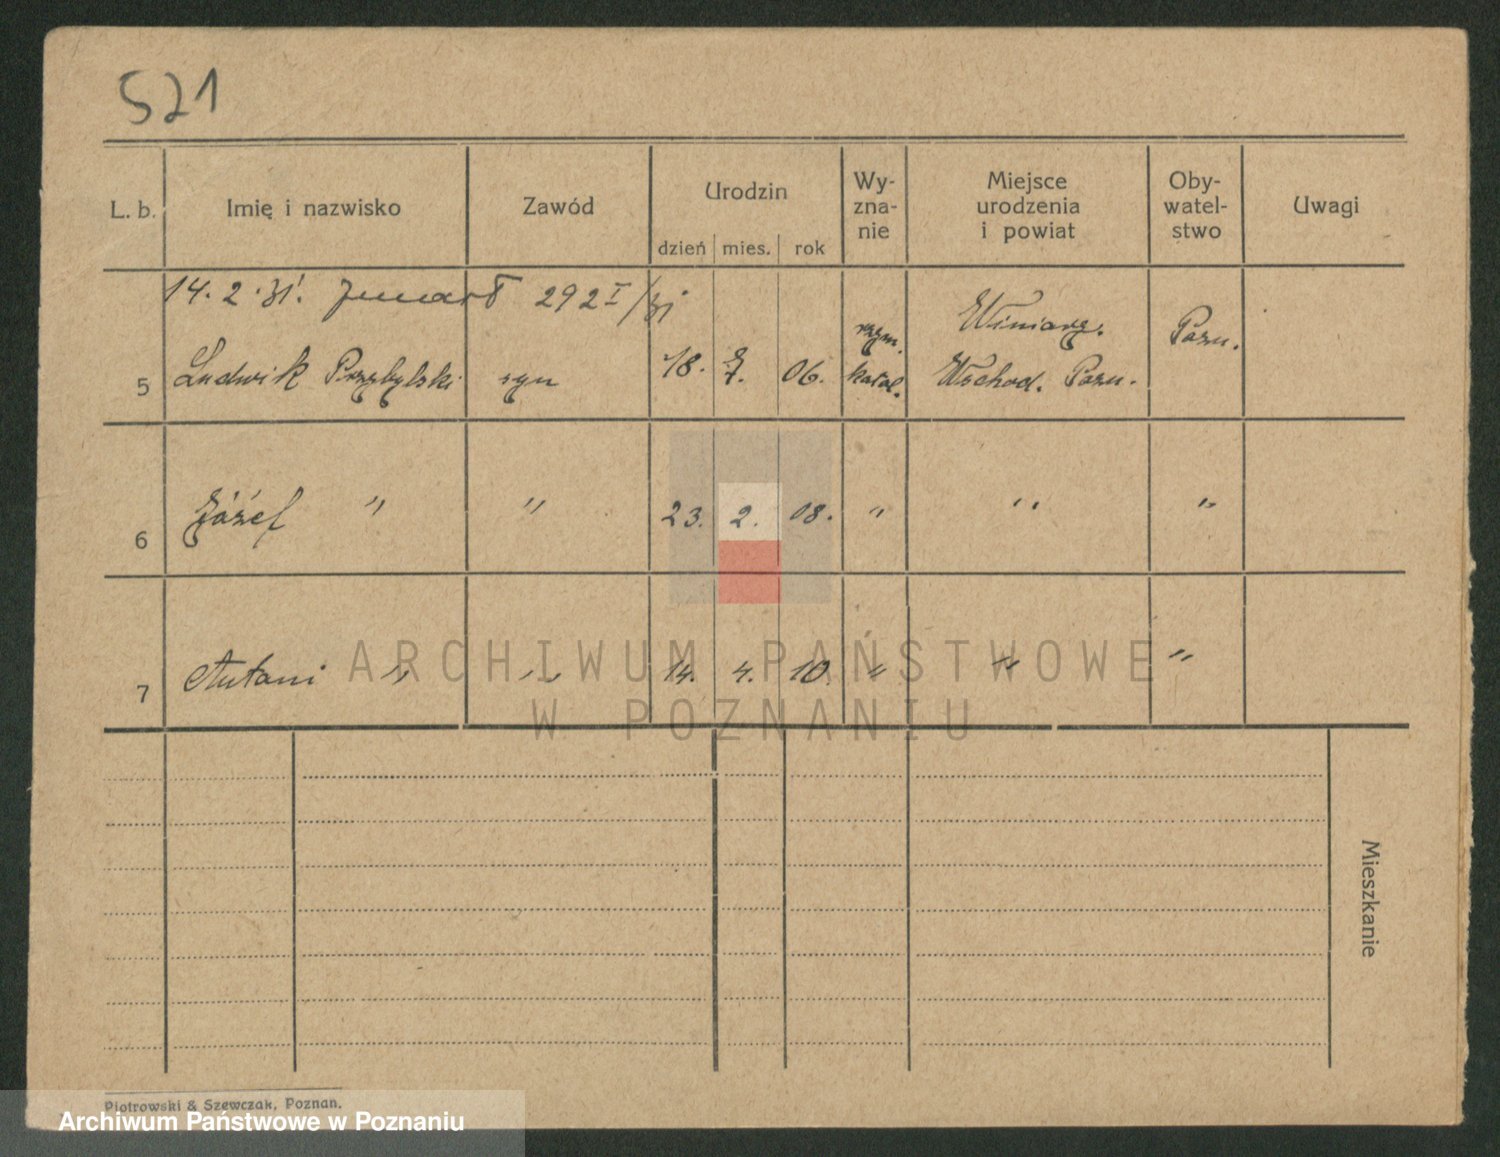 521
L. b. Imię i nazwisko Zawód Urodzin dzień mies. rok Wy-zna-nie Miejsce urodzenia i powiat Oby-watel-stwo Uwagi
14. 2. 31. zmarł 292 I/31
Winiary.
rzym. Pozn.
5 Ludwik Przybylski syn 18. 8. 06. katol. Wschod. Pozn.
7.
6 Józef " " 23. 2. 08. " " "
7 Antoni " " 14. 4. 10. " " "
ARCHIWUM PAŃSTWOWE
W POZNANIU
Mieszkanie
Piotrowski & Szewczak, Poznan.
Archiwum Państwowe w Poznaniu